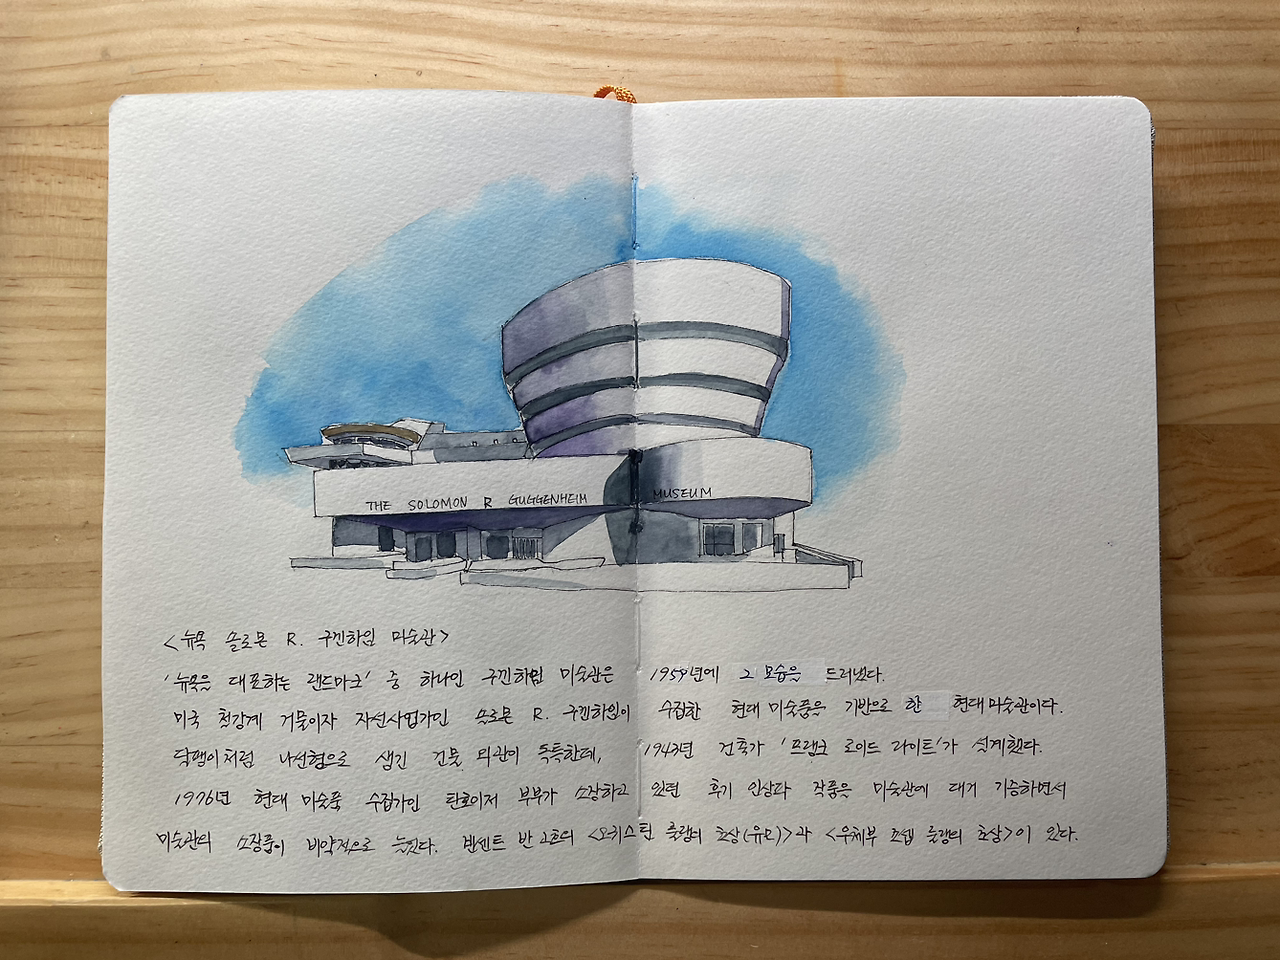 THE SOLOMON R GUGGENHEIM MUSEUM
<뉴욕 솔로몬 R. 구겐하임 미술관>
'뉴욕을 대표하는 랜드마크' 중 하나인 구겐하임 미술관은 1959년에 그 모습을 드러냈다.
미국 철강계 거물이자 자선사업가인 솔로몬 R. 구겐하임이 수집한 현대미술품을 기반으로 한 현대미술관이다.
달팽이처럼 나선형으로 생긴 건물 외관이 독특한데, 1943년 건축가 '프랭크 로이드 라이트'가 설계했다.
1976년 현대 미술품 수집가인 탄호이저 부부가 소장하고 있던 후기 인상파 작품을 미술관에 대거 기증하면서
미술관의 소장품이 비약적으로 늘었다. 빈센트 반 고흐의 <오귀스틴 룰랭의 초상(유모)>과 <우체부 조셉 룰랭의 초상>이 있다.